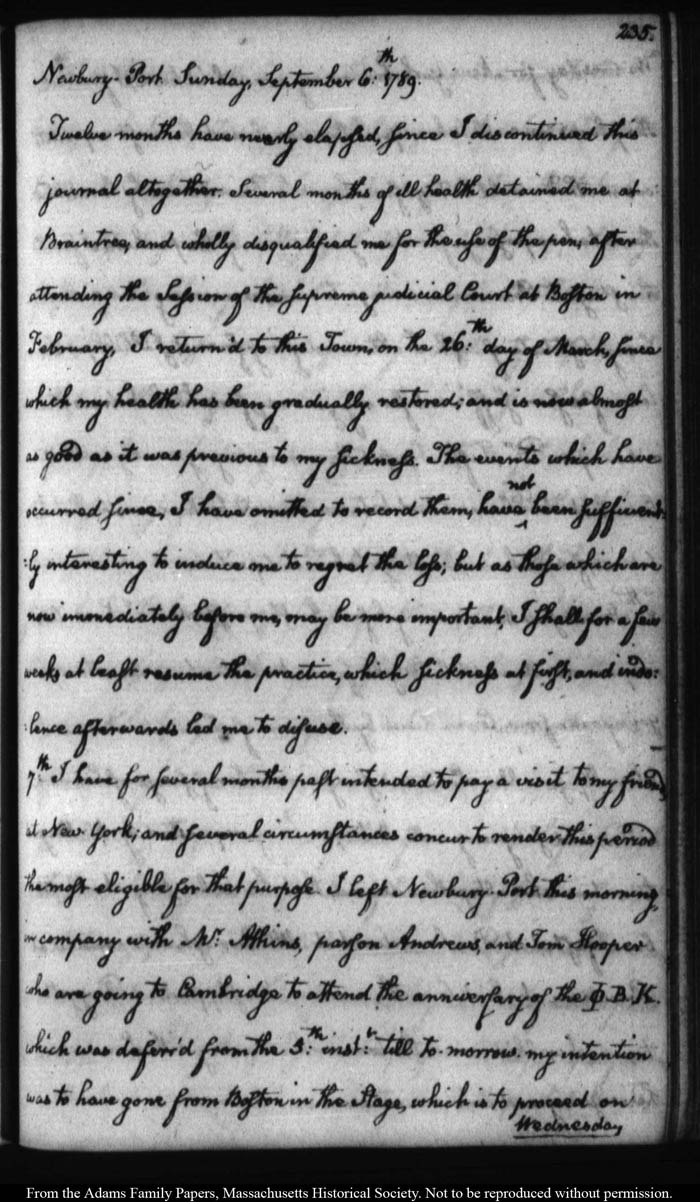 235.
Newbury-Port Sunday, September 6:th 1789.
Twelve months have nearly elapsed, since I discontinued this
journal altogether. Several months of ill health detained me at
Braintree, and wholly disqualified me for the use of the pen, after
attending the Session of the supreme judicial Court at Boston in
February, I return'd to this Town, on the 26:th day of March, since
which my health has been gradually restored; and is now almost
as good as it was previous to my sickness. The events which have
occurred since, I have omitted to record them, have not been sufficient:
:ly interesting to induce me to regret the loss; but as those which are
now immediately before me, may be more important, I shall for a few
weeks at least resume the practice, which sickness at first, and indo:
:lence afterwards led me to disuse.
7:th I have for several months past intended to pay a visit to my friends
at New York; and several circumstances concur to render this period
the most eligible for that purpose. I left Newbury-Port this morning,
in company with Mr. Atkins, parson Andrews, and Tom Hooper
who are going to Cambridge to attend the anniversary of the Φ.B.K.
which was deferr'd from the 5:th inst:t till to-morrow. my intention
was to have gone from Boston in the Stage, which is to proceed on
Wednesday,
From the Adams Family Papers, Massachusetts Historical Society. Not to be reproduced without permission.